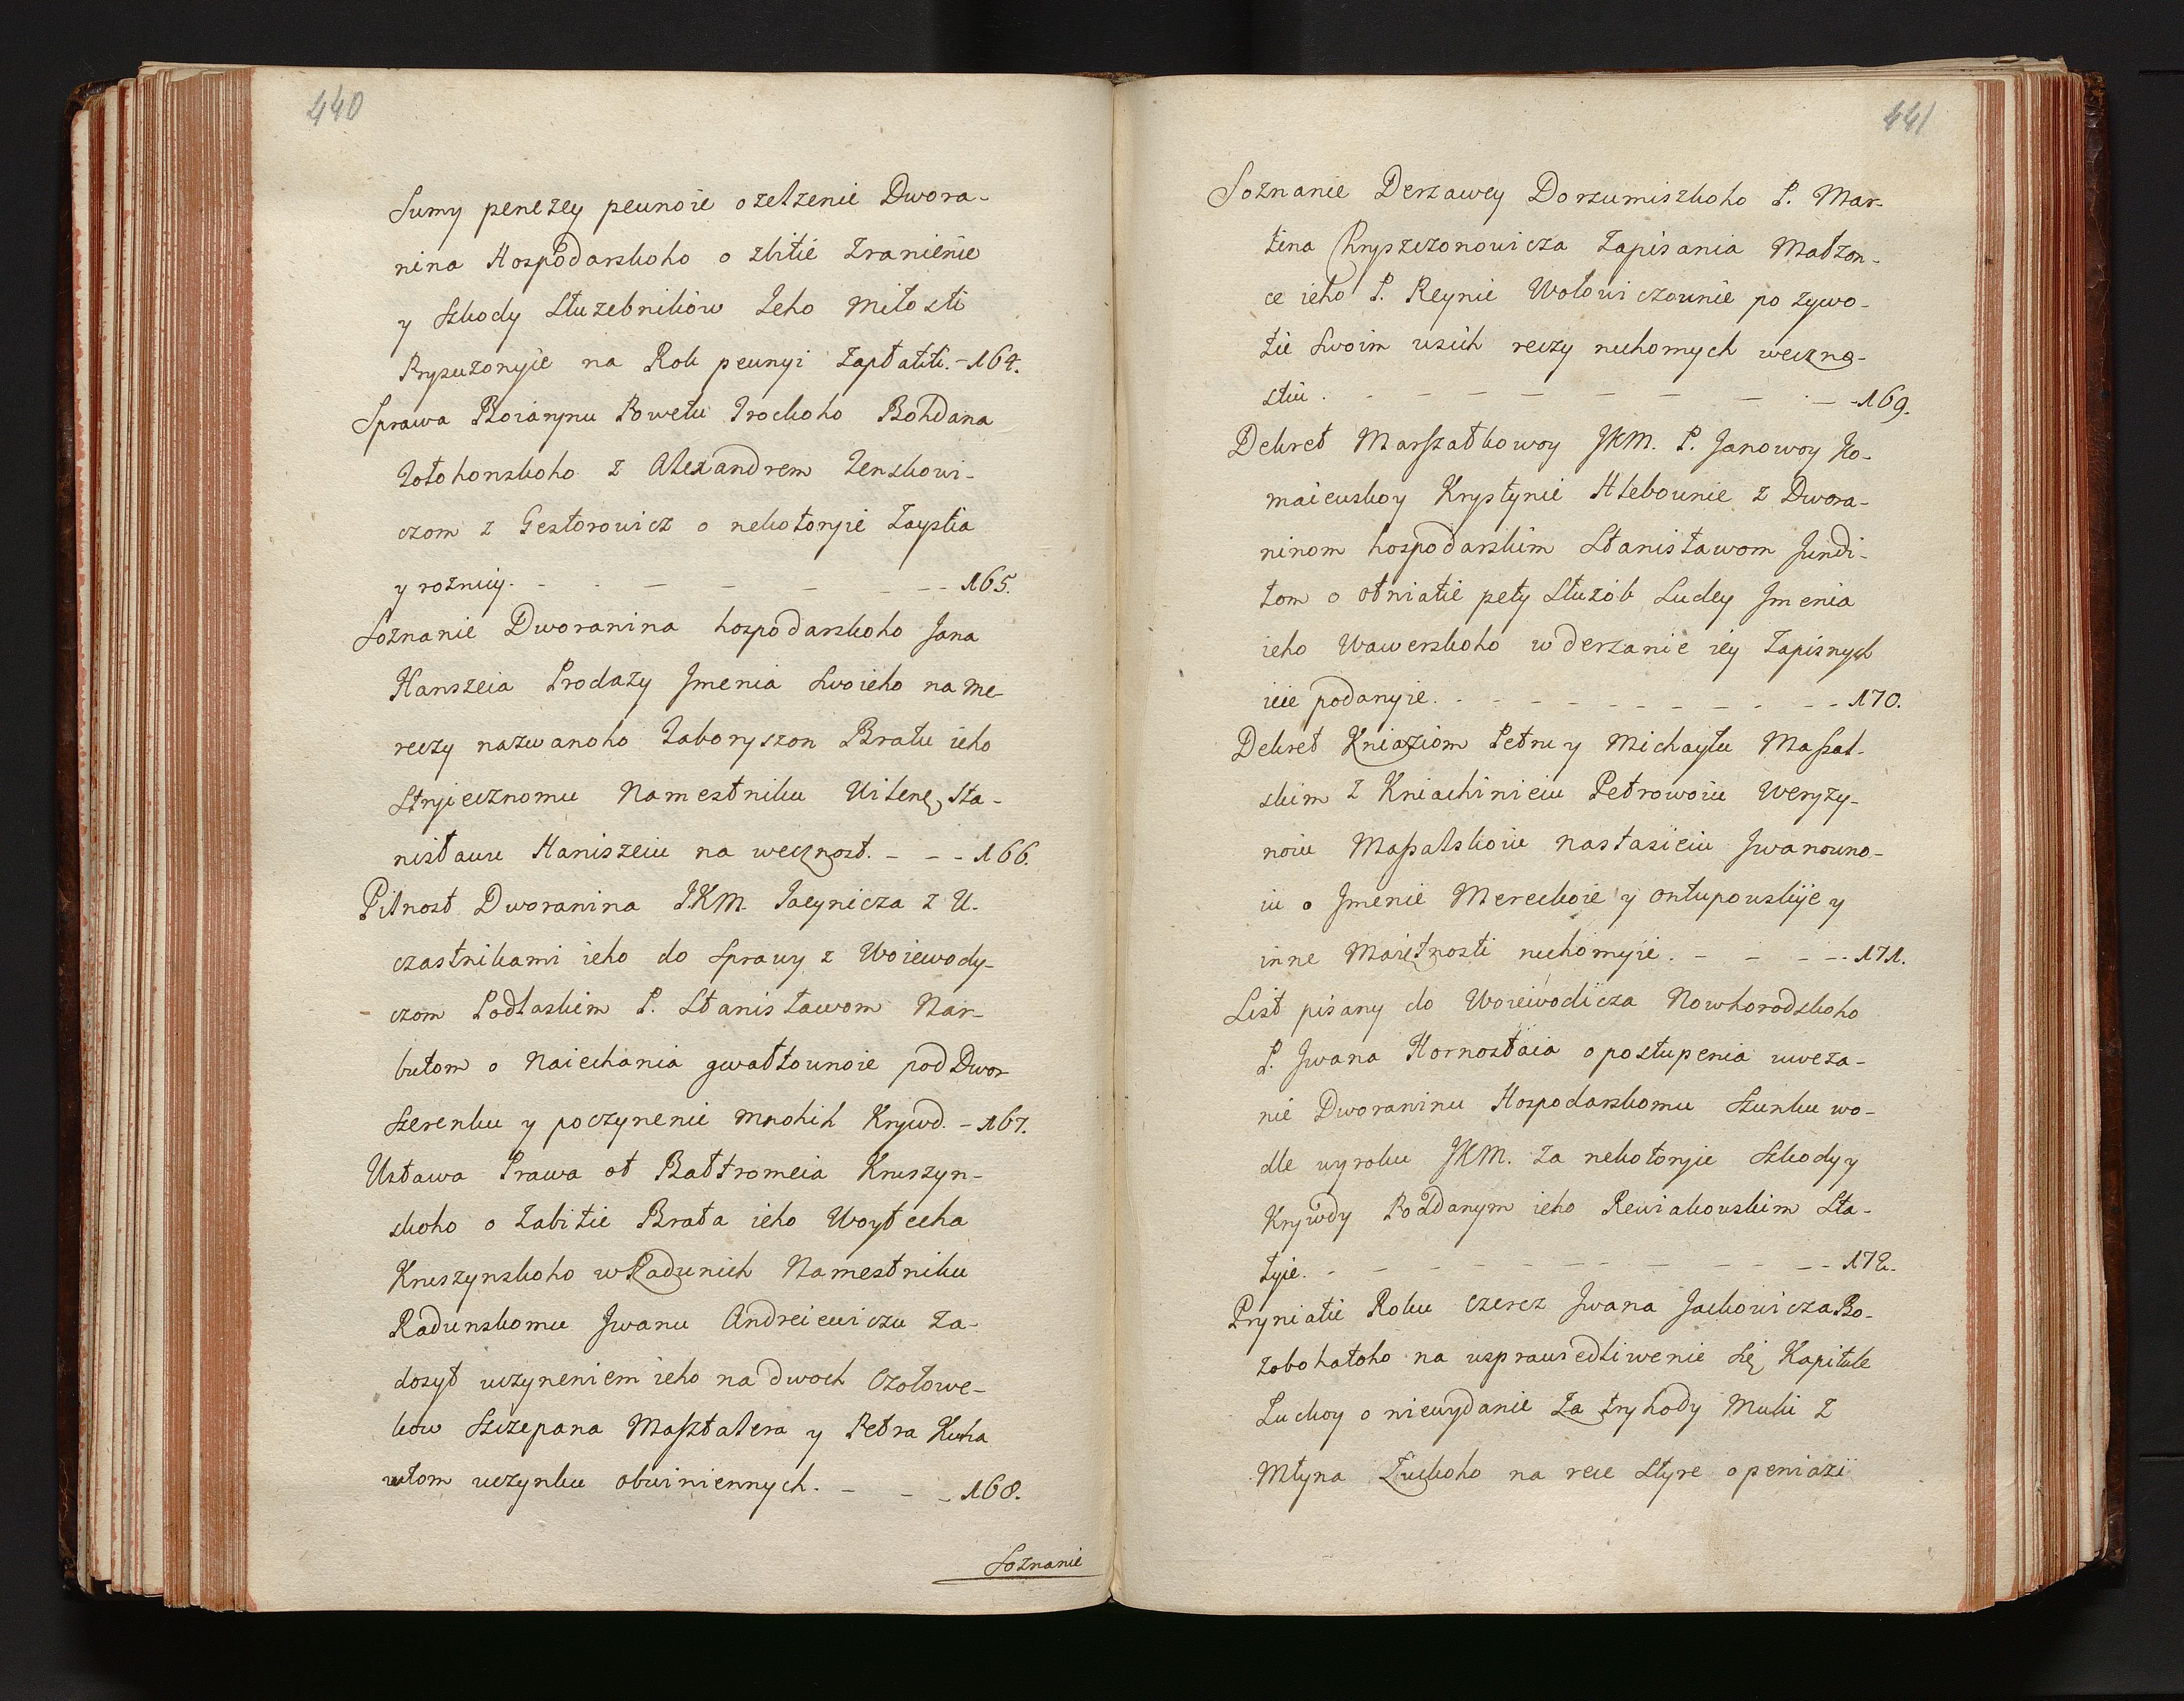 440
Sumy penezey pewnoie o zelzenie Dwora-
nina Hospodarskoho o zbitie Zranienie
y szkody Służebników Jeho Miłosti
Prysużonyie na Rok pewnyi Zapłatiti. - 164.
Sprawa Boiarynu Powetu Trockoho Bohdana
Zołohonskoho z Alexandrem Zenkowi-
czom z Gestorowicz o nekotoryie Zaystia
y roznicy. - - - - - - - 165.
Soznanie Dworanina hospodarskoho Jana
Hanszeia Prodaży Jmenia Swoieho na Me-
reczy nazwanoho Zaboryszon Bratu ieho
Stryiecznomu Namestniku Wilenę Sta-
nisławu Haniszeiu na wecznost. - - - 166.
Pilnost Dworanina JKM. Jacynicza z U-
czastnikami ieho do Sprawy z Woiewody-
czom Podlaskim P. Stanisławom Nar-
butom o Naiechania gwałtownoie pod Dwor
Szerenku y poczynenie mnohih Krywd. - 167.
Ustawa Prawa ot Bałtromeia Kruszyn-
skoho o Zabitie Brata ieho Woytecha
Kruszynskoho w Radunich Namestniku
Radunskomu Jwanu Andreiewiczu Za-
dosyt uczyneniem ieho na dwoch Czołowe-
kow Szczepana Masztalera y Petra Kucha
utom uczynku obwiniennych. - - - 168.
Soznanie
441
Soznanie Derzawcy Dorsumiszkoho P. Mar-
tina Chryszczonowicza Zapisania Małżon-
ce ieho P. Reynie Wołowiczownie po żywo-
tie Swoim wsich reczy ruchomych weczno-
stiu. - - - - - - - - - 169.
Dekret Marszałkowoy JKM. P. Janowoy Ko-
maiewskoy Krystynie Hlebownie z Dwora-
ninom hospodarskim Stanisławom Jundi-
łom o otniatie pety Służób Ludey Jmenia
ieho Wawerskoho w derzanie iey Zapisnych
ieie podanyie. - - - - - - - - - 170.
Dekret Kniaziom Petru y Michayłu Massal-
skim z Kniachinieiu Petrowoiu Weryży-
noiu Massalskoiu Nastasieiu Jwanowno-
iu o Jmenie Mereckoie y Ontupowskije y
inne Maiętnosti ruchomyie. - - - - 171.
List pisany do Woiewodicza Nowhorodskoho
P. Jwana Hornostaia o postupenia uweza-
nie Dworaninu Hospodarskomu Szunku wo-
dle wyroku JKM. Za nekotoryie Szkody y
Krywdy Poddanym ieho Rewiakowskim Sta-
tyie. - - - - - - - - - - 172.
Pryniatie Roku czerez Jwana Jackowicza Bo-
żobohatoho na usprawiedliwenie Się Kapitule
Łuckoy o niewydanie Za try hody Muki z
Młyna Łuckoho na rece Styre o peniazi